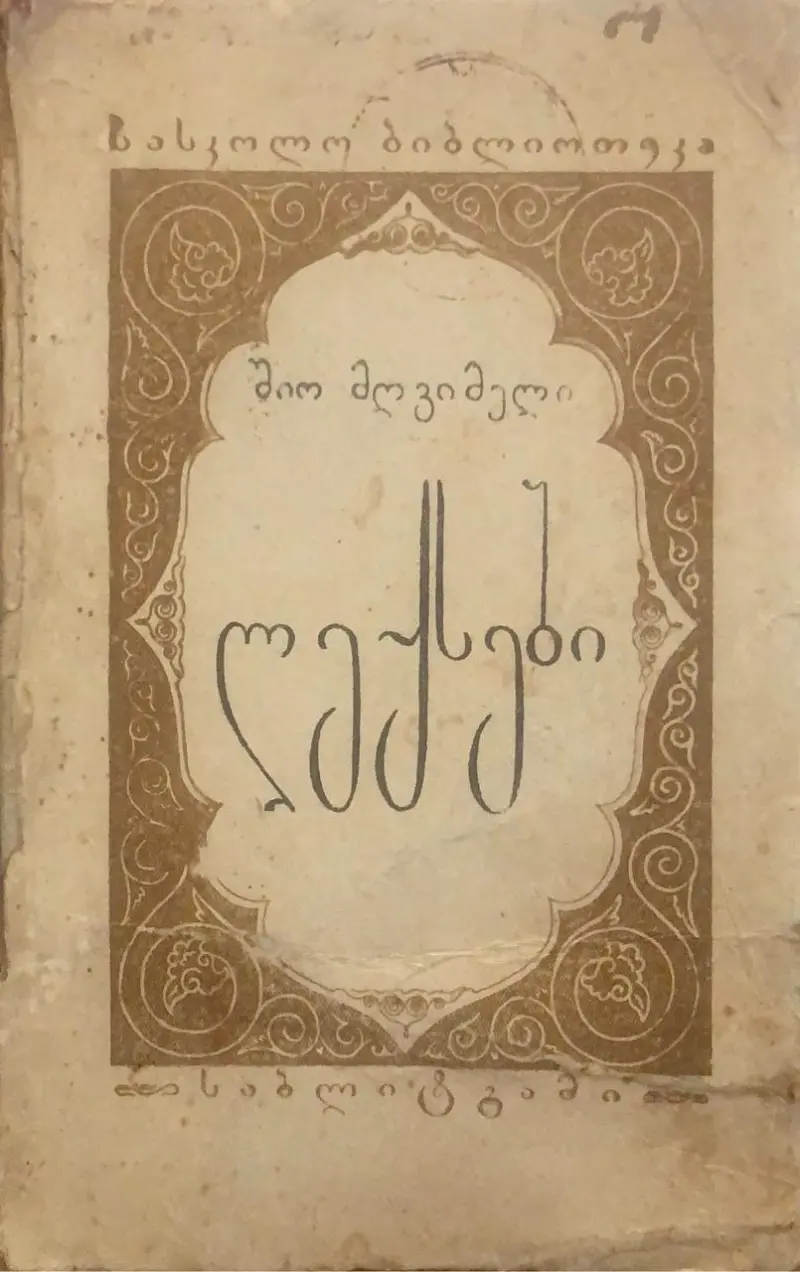 სასკოლო ბიბლიოთეკა
შიო მღვიმელი
ლექსები
საბლიტგამი